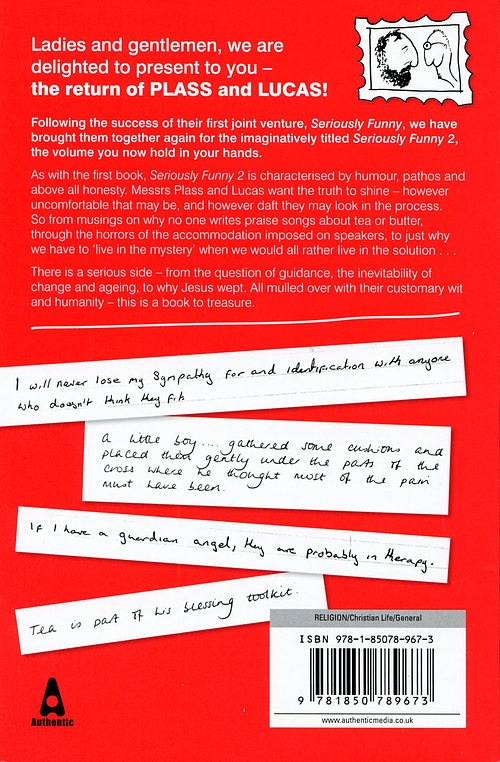 Ladies and gentlemen, we are
delighted to present to you –
the return of PLASS and LUCAS!
Following the success of their first joint venture, Seriously Funny, we have
brought them together again for the imaginatively titled Seriously Funny 2,
the volume you now hold in your hands.
As with the first book, Seriously Funny 2 is characterised by humour, pathos and
above all honesty. Messrs Plass and Lucas want the truth to shine – however
uncomfortable that may be, and however daft they may look in the process.
So from musings on why no one writes praise songs about tea or butter,
through the horrors of the accommodation imposed on speakers, to just why
we have to 'live in the mystery' when we would all rather live in the solution . . .
There is a serious side – from the question of guidance, the inevitability of
change and ageing, to why Jesus wept. All mulled over with their customary wit
and humanity – this is a book to treasure.
I will never lose my sympathy for and identification with anyone
who doesn't think they fit
A little boy .... gathered some cushions and
placed them gently under the parts of the
cross where he thought most of the pain
must have been.
If I have a guardian angel, they are probably in therapy.
Tea is part of his blessing toolkit.
RELIGION/Christian Life/General
ISBN 978-1-85078-967-3
9 781850 789673
www.authenticmedia.co.uk
Authentic